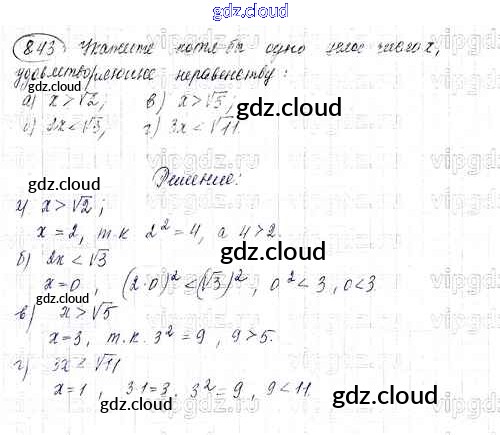 gdz.cloud
843 Укажите хотя бы одно целое число x,
удовлетворяющее неравенству:
а) x > √2; в) x > √5;
gdz.cloud gdz.cloud
б) 2x < √3; г) 3x < √11
gdz.cloud
Решение:
gdz.cloud
а) x > √2;
x = 2, т.к 2² = 4, а 4 > 2.
gdz.cloud
б) 2x < √3
x = 0, (2·0)² < (√3)², 0² < 3, 0 < 3.
gdz.cloud
в) x > √5
x = 3, т.к. 3² = 9, 9 > 5.
gdz.cloud
г) 3x < √11
gdz.cloud
x = 1, 3·1 = 3, 3² = 9, 9 < 11.
gdz.cloud